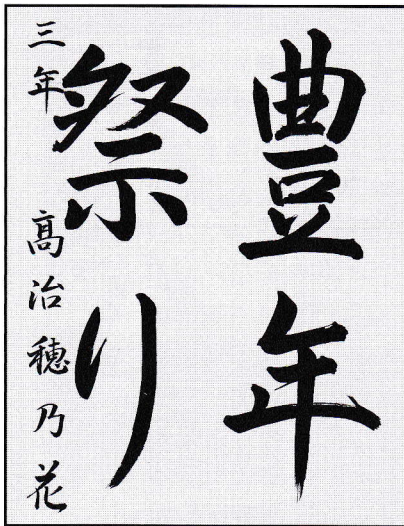 豊年
祭り
三年 髙治穂乃花